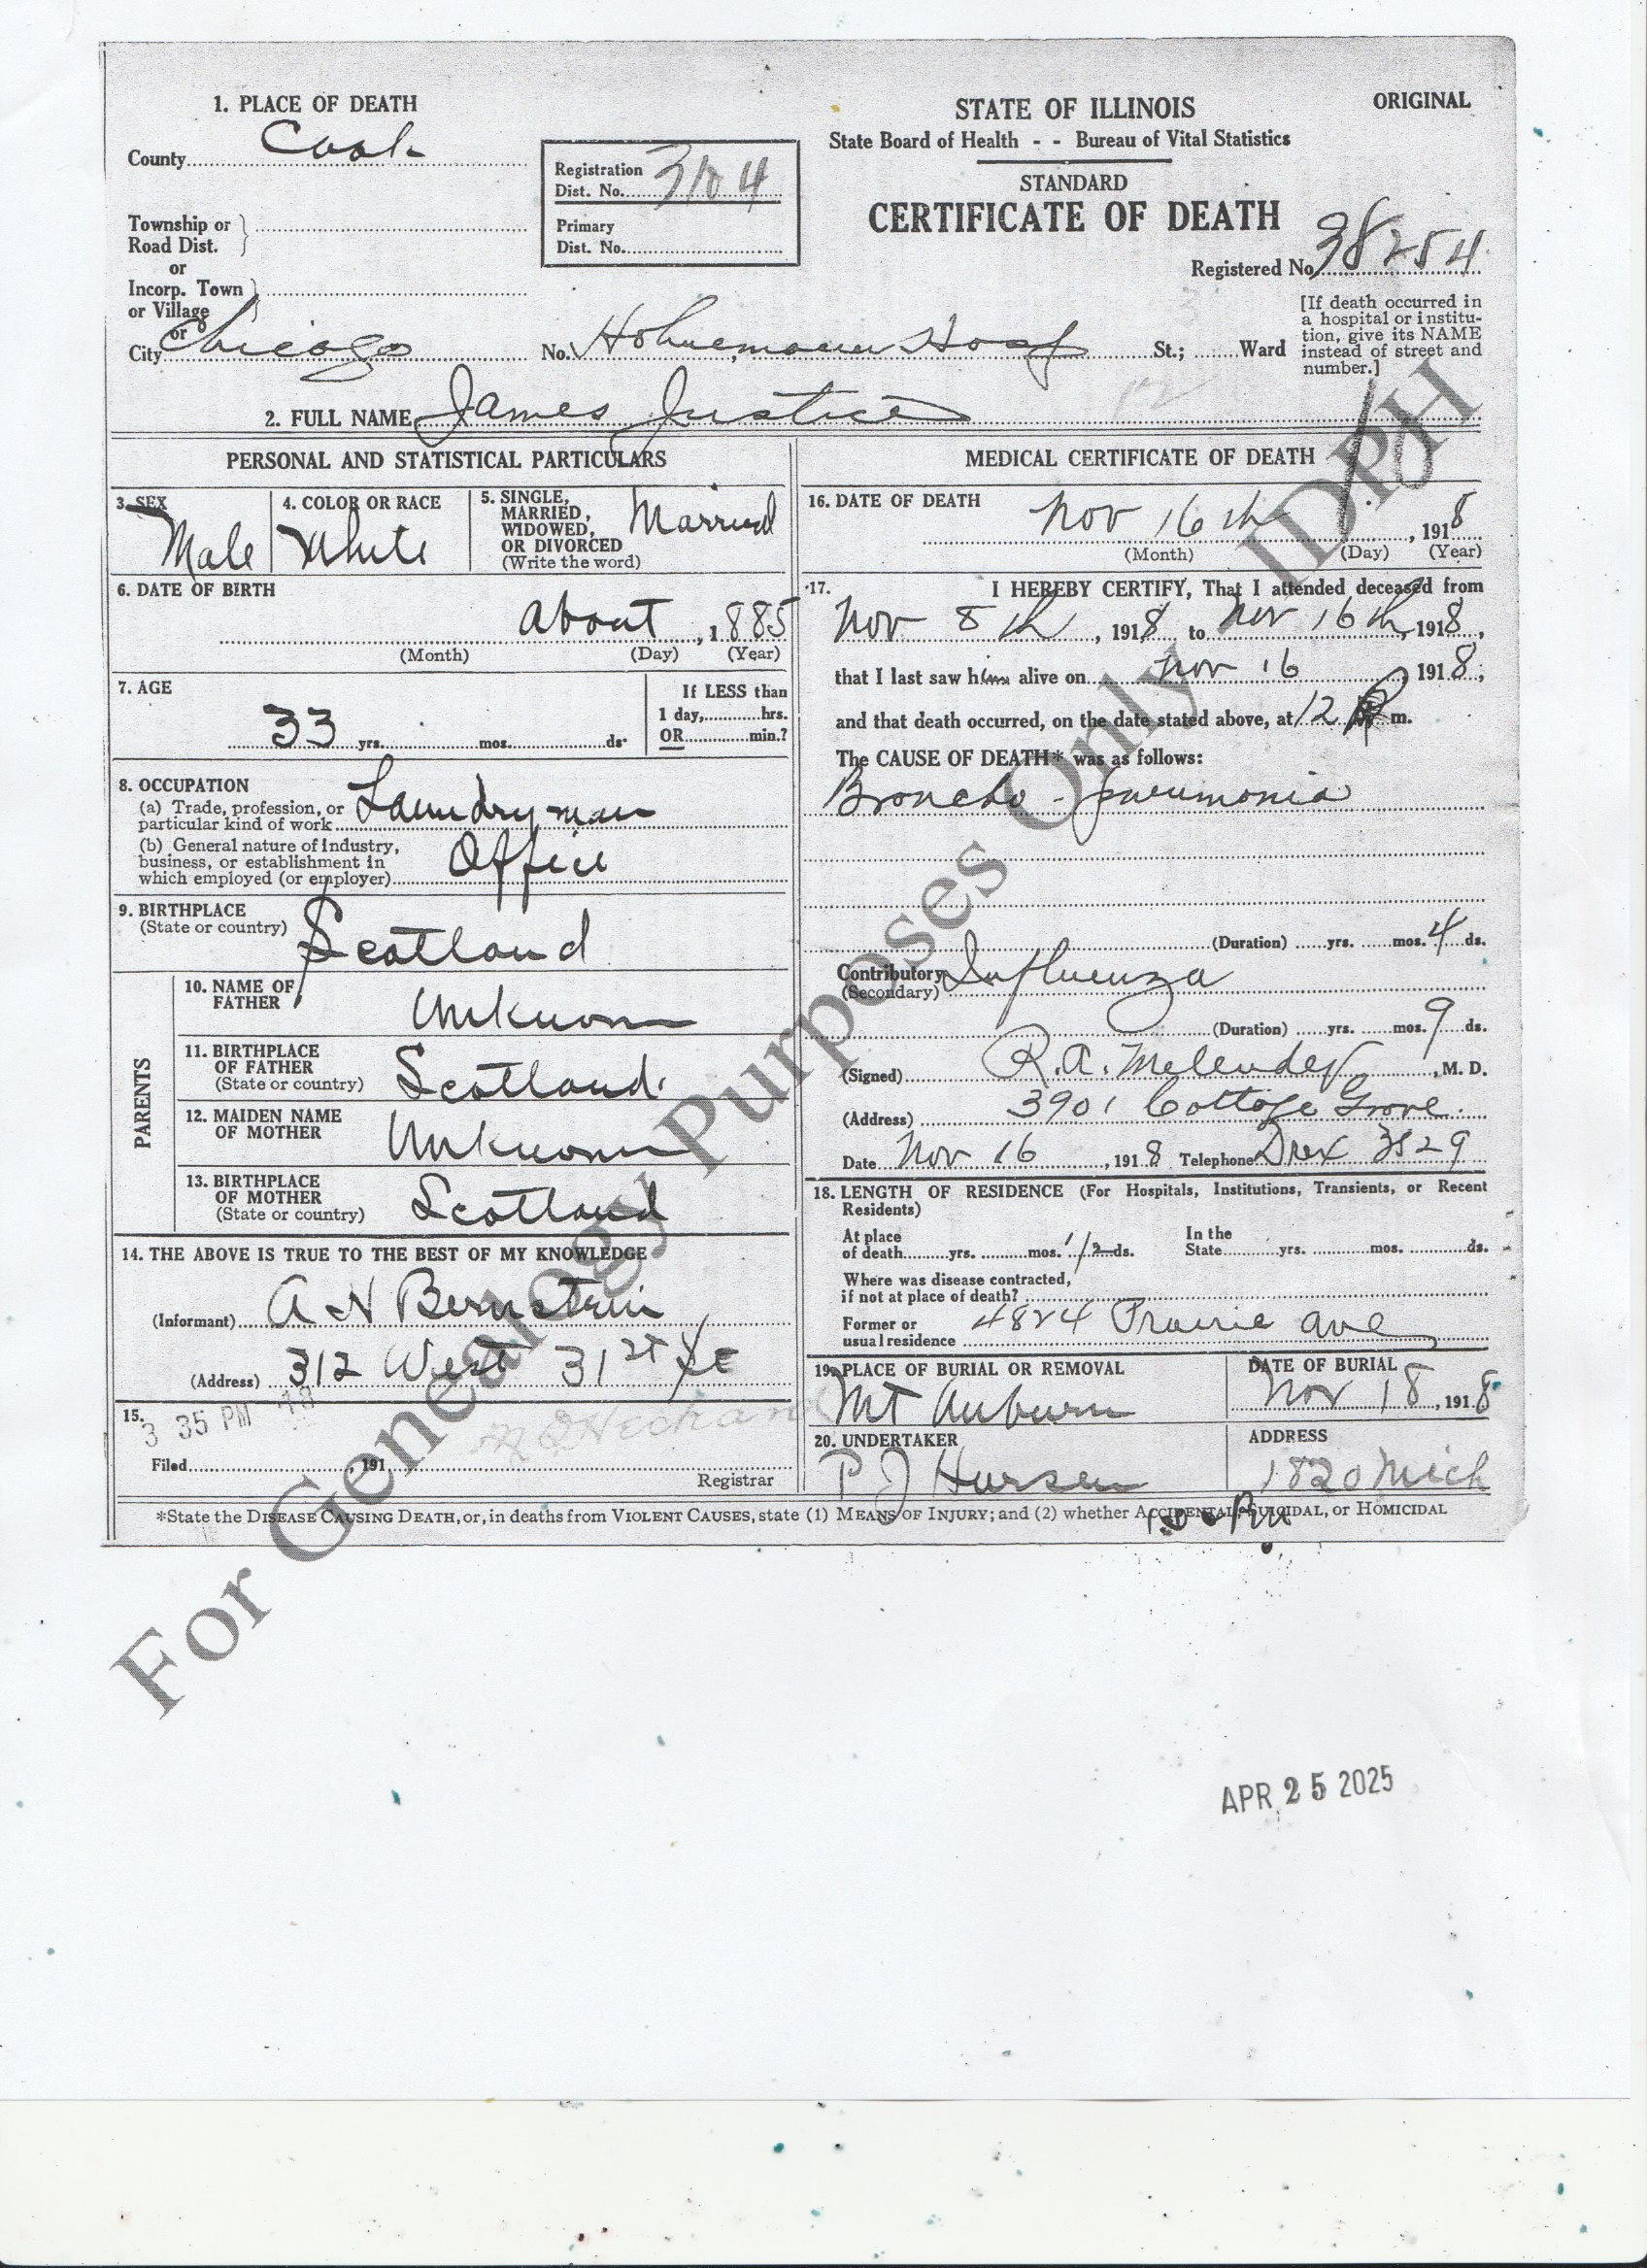 1. PLACE OF DEATH
County Cook
Township or
Road Dist.
or
Incorp. Town
or Village
or
City Chicago
Registration
Dist. No. 3104
Primary
Dist. No.
STATE OF ILLINOIS
ORIGINAL
State Board of Health - - Bureau of Vital Statistics
STANDARD
CERTIFICATE OF DEATH
Registered No 38254
No. Hohnemann Hosp St.; Ward
[If death occurred in
a hospital or institu-
tion, give its NAME
instead of street and
number.]
2. FULL NAME James Justice
PERSONAL AND STATISTICAL PARTICULARS
3. SEX
Male
4. COLOR OR RACE
White
5. SINGLE,
MARRIED,
WIDOWED,
OR DIVORCED
(Write the word)
Married
6. DATE OF BIRTH
about , 1885
(Month) (Day) (Year)
7. AGE
33 yrs. mos. ds.
If LESS than
1 day, hrs.
OR min.?
8. OCCUPATION
(a) Trade, profession, or
particular kind of work Laundryman
(b) General nature of Industry,
business, or establishment in
which employed (or employer) Office
9. BIRTHPLACE
(State or country) Scotland
PARENTS
10. NAME OF
FATHER Unknown
11. BIRTHPLACE
OF FATHER
(State or country) Scotland
12. MAIDEN NAME
OF MOTHER Unknown
13. BIRTHPLACE
OF MOTHER
(State or country) Scotland
14. THE ABOVE IS TRUE TO THE BEST OF MY KNOWLEDGE
(Informant) A N Bernstein
(Address) 312 West 31st St
15.
3 35 PM 18
Filed , 191
Registrar
MEDICAL CERTIFICATE OF DEATH
16. DATE OF DEATH
Nov 16th , 1918
(Month) (Day) (Year)
17. I HEREBY CERTIFY, That I attended deceased from
Nov 8th , 1918 to Nov 16th, 1918,
that I last saw him alive on Nov 16 , 1918;
and that death occurred, on the date stated above, at 12 P m.
The CAUSE OF DEATH* was as follows:
Broncho-pneumonia
(Duration) yrs. mos. 4 ds.
Contributory Influenza
(Secondary)
(Duration) yrs. mos. 9 ds.
(Signed) R.A. Melendy , M. D.
(Address) 3901 Cottage Grove.
Date Nov 16 , 1918 Telephone Drex 3829
18. LENGTH OF RESIDENCE (For Hospitals, Institutions, Transients, or Recent
Residents)
At place
of death yrs. mos. 1/2 ds.
In the
State yrs. mos. ds.
Where was disease contracted,
if not at place of death?
Former or
usual residence 4824 Prairie Ave
19. PLACE OF BURIAL OR REMOVAL
Mt Auburn
DATE OF BURIAL
Nov 18, 1918
20. UNDERTAKER
P J Hursen
ADDRESS
1820 Mich
*State the DISEASE CAUSING DEATH, or, in deaths from VIOLENT CAUSES, state (1) MEANS OF INJURY; and (2) whether ACCIDENTAL, SUICIDAL, or HOMICIDAL
For Genealogy Purposes Only IDPH
APR 25 2025